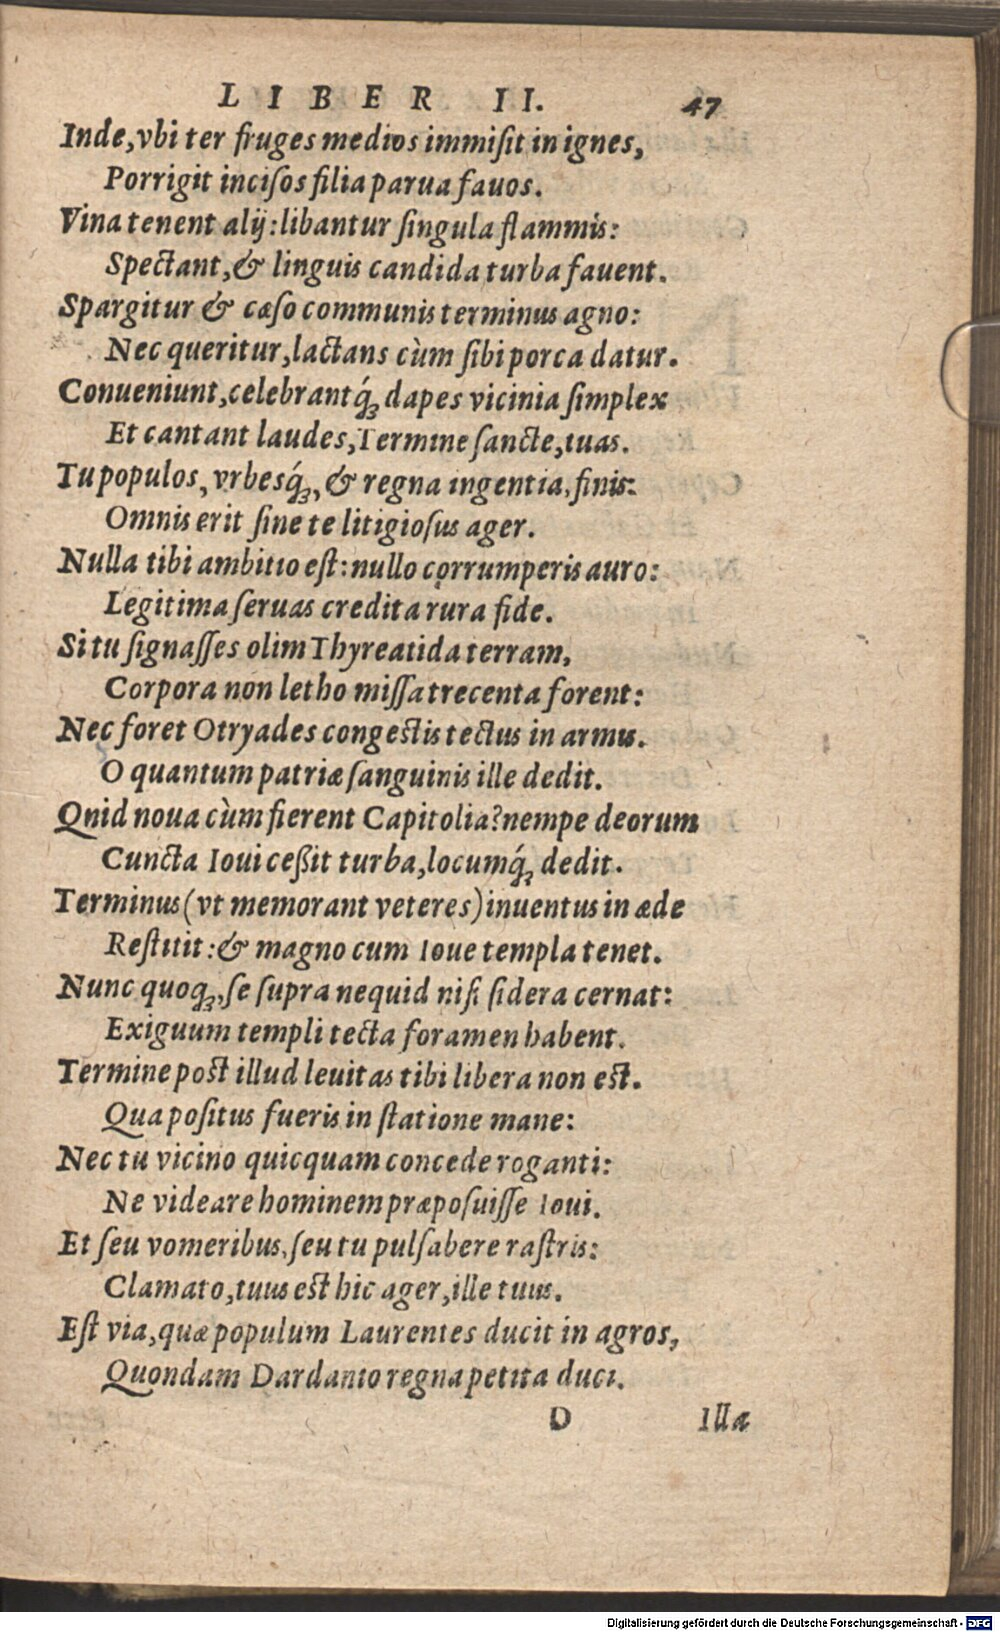 LIBER II. 47
Inde, vbi ter fruges medios immiſit in ignes,
Porrigit inciſos filia parua fauos.
Vina tenent alij: libantur ſingula flammis:
Spectant, & linguis candida turba fauent.
Spargitur & cæſo communis terminus agno:
Nec queritur, lactans cùm ſibi porca datur.
Conueniunt, celebrantq́; dapes vicinia ſimplex
Et cantant laudes, Termine ſancte, tuas.
Tu populos, vrbesq́;, & regna ingentia, finis:
Omnis erit ſine te litigioſus ager.
Nulla tibi ambitio eſt: nullo corrumperis auro:
Legitima ſeruas credita rura fide.
Si tu ſignaſſes olim Thyreatida terram,
Corpora non letho miſſa trecenta forent:
Nec foret Otryades congeſtis tectus in armis.
O quantum patriæ ſanguinis ille dedit.
Quid noua cùm fierent Capitolia? nempe deorum
Cuncta Ioui ceßit turba, locumq́; dedit.
Terminus (vt memorant veteres) inuentus in æde
Reſtitit: & magno cum Ioue templa tenet.
Nunc quoq;, ſe ſupra nequid niſi ſidera cernat:
Exiguum templi tecta foramen habent.
Termine poſt illud leuitas tibi libera non eſt.
Qua poſitus fueris in ſtatione mane:
Nec tu vicino quicquam concede roganti:
Ne videare hominem præpoſuiſſe Ioui.
Et ſeu vomeribus, ſeu tu pulſabere raſtris:
Clamato, tuus eſt hic ager, ille tuus.
Eſt via, quæ populum Laurentes ducit in agros,
Quondam Dardanio regna petita duci.
D Illa
Digitalisierung gefördert durch die Deutsche Forschungsgemeinschaft - DFG